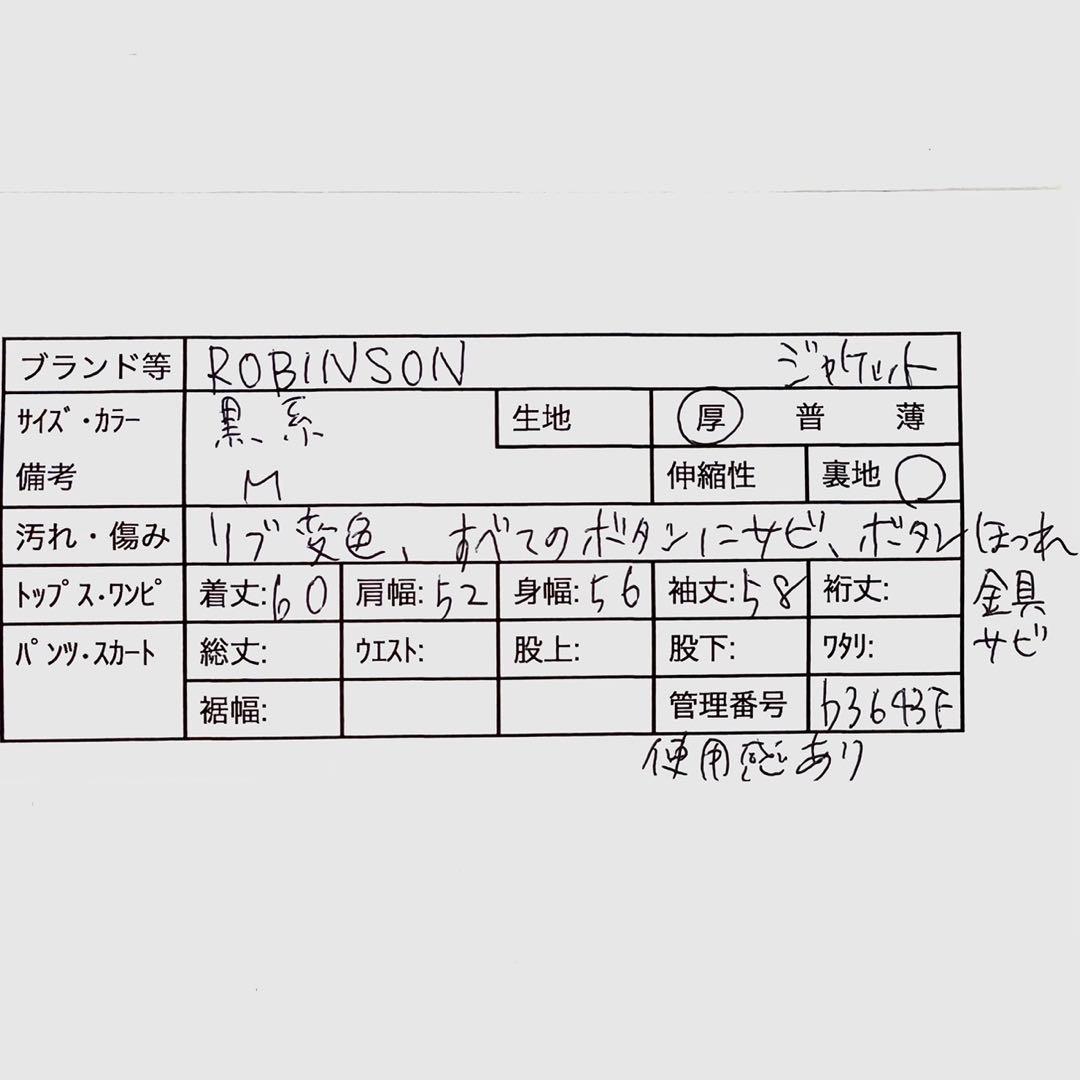 ブランド等 ROBINSON ジャケット
サイズ・カラー 黒、系 生地 厚 普 薄
備考 M 伸縮性 裏地 ○
汚れ・傷み リブ変色、すべてのボタンにサビ、ボタンほつれ
金具
サビ
トップス・ワンピ 着丈:60 肩幅:52 身幅:56 袖丈:58 裄丈:
パンツ・スカート 総丈: ウエスト: 股上: 股下: ワタリ:
裾幅: 管理番号 b3643F
使用感あり